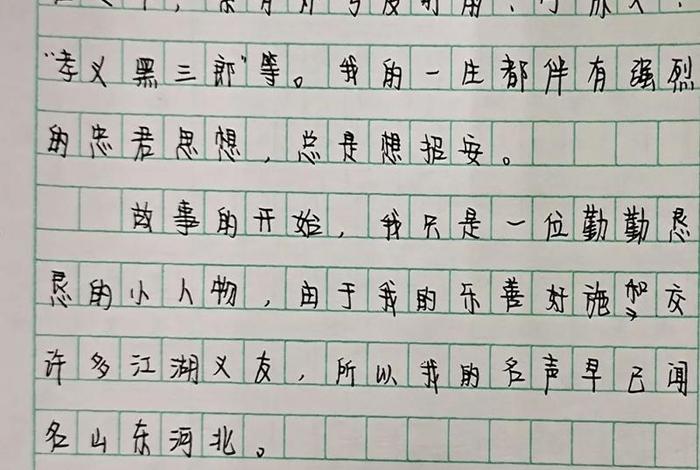 号及时雨、
“孝义黑三郎”等。我的一庄都伴有强烈
的忠君思想，总是想招安。
故事的开始，我只是一位勤勤恳
恳的小人物，由于我的乐善好施交
许多江湖义友，所以我的名声早已闻
名山东河北。